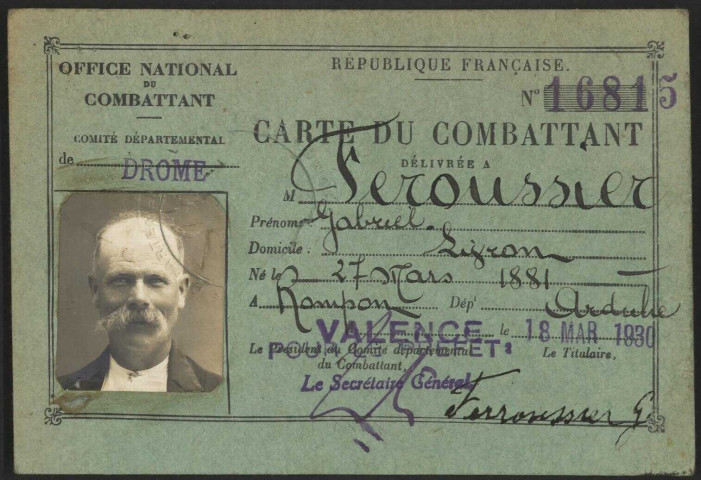 OFFICE NATIONAL
DU
COMBATTANT
COMITÉ DÉPARTEMENTAL
de DRÔME
RÉPUBLIQUE FRANÇAISE.
N° 16815
CARTE DU COMBATTANT
DÉLIVRÉE A
M Feroussier
Prénoms : Gabriel.
Domicile : Livron
Né le 27 Mars 1881
A Rompon Dépt Ardèche
VALENCE le 18 MAR 1930
Le Président du Comité départemental
du Combattant,
POUR LE PRÉFET:
Le Secrétaire Général
Le Titulaire,
Ferroussier G